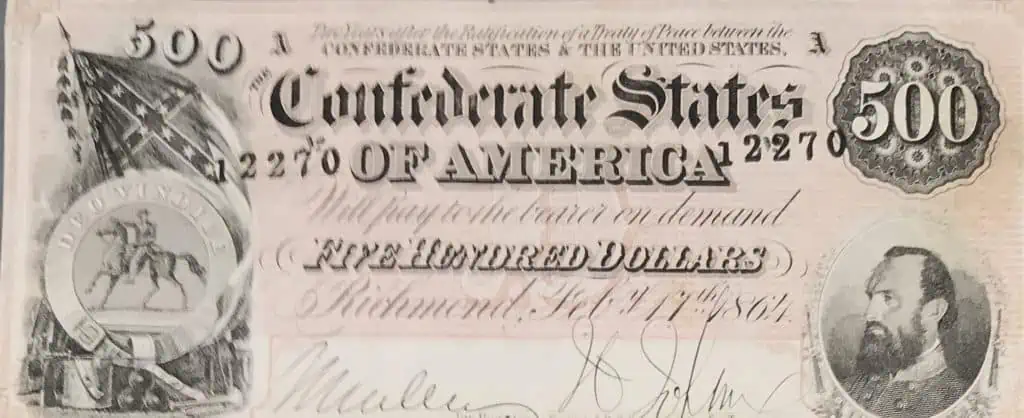 500 A Two Years after the Ratification of a Treaty of Peace between the
CONFEDERATE STATES & THE UNITED STATES, A
THE
Confederate States
500
No 12270 OF AMERICA 12270
DEO VINDICE
Will pay to the bearer on demand
FIVE HUNDRED DOLLARS
Richmond, Feby 17th 1864